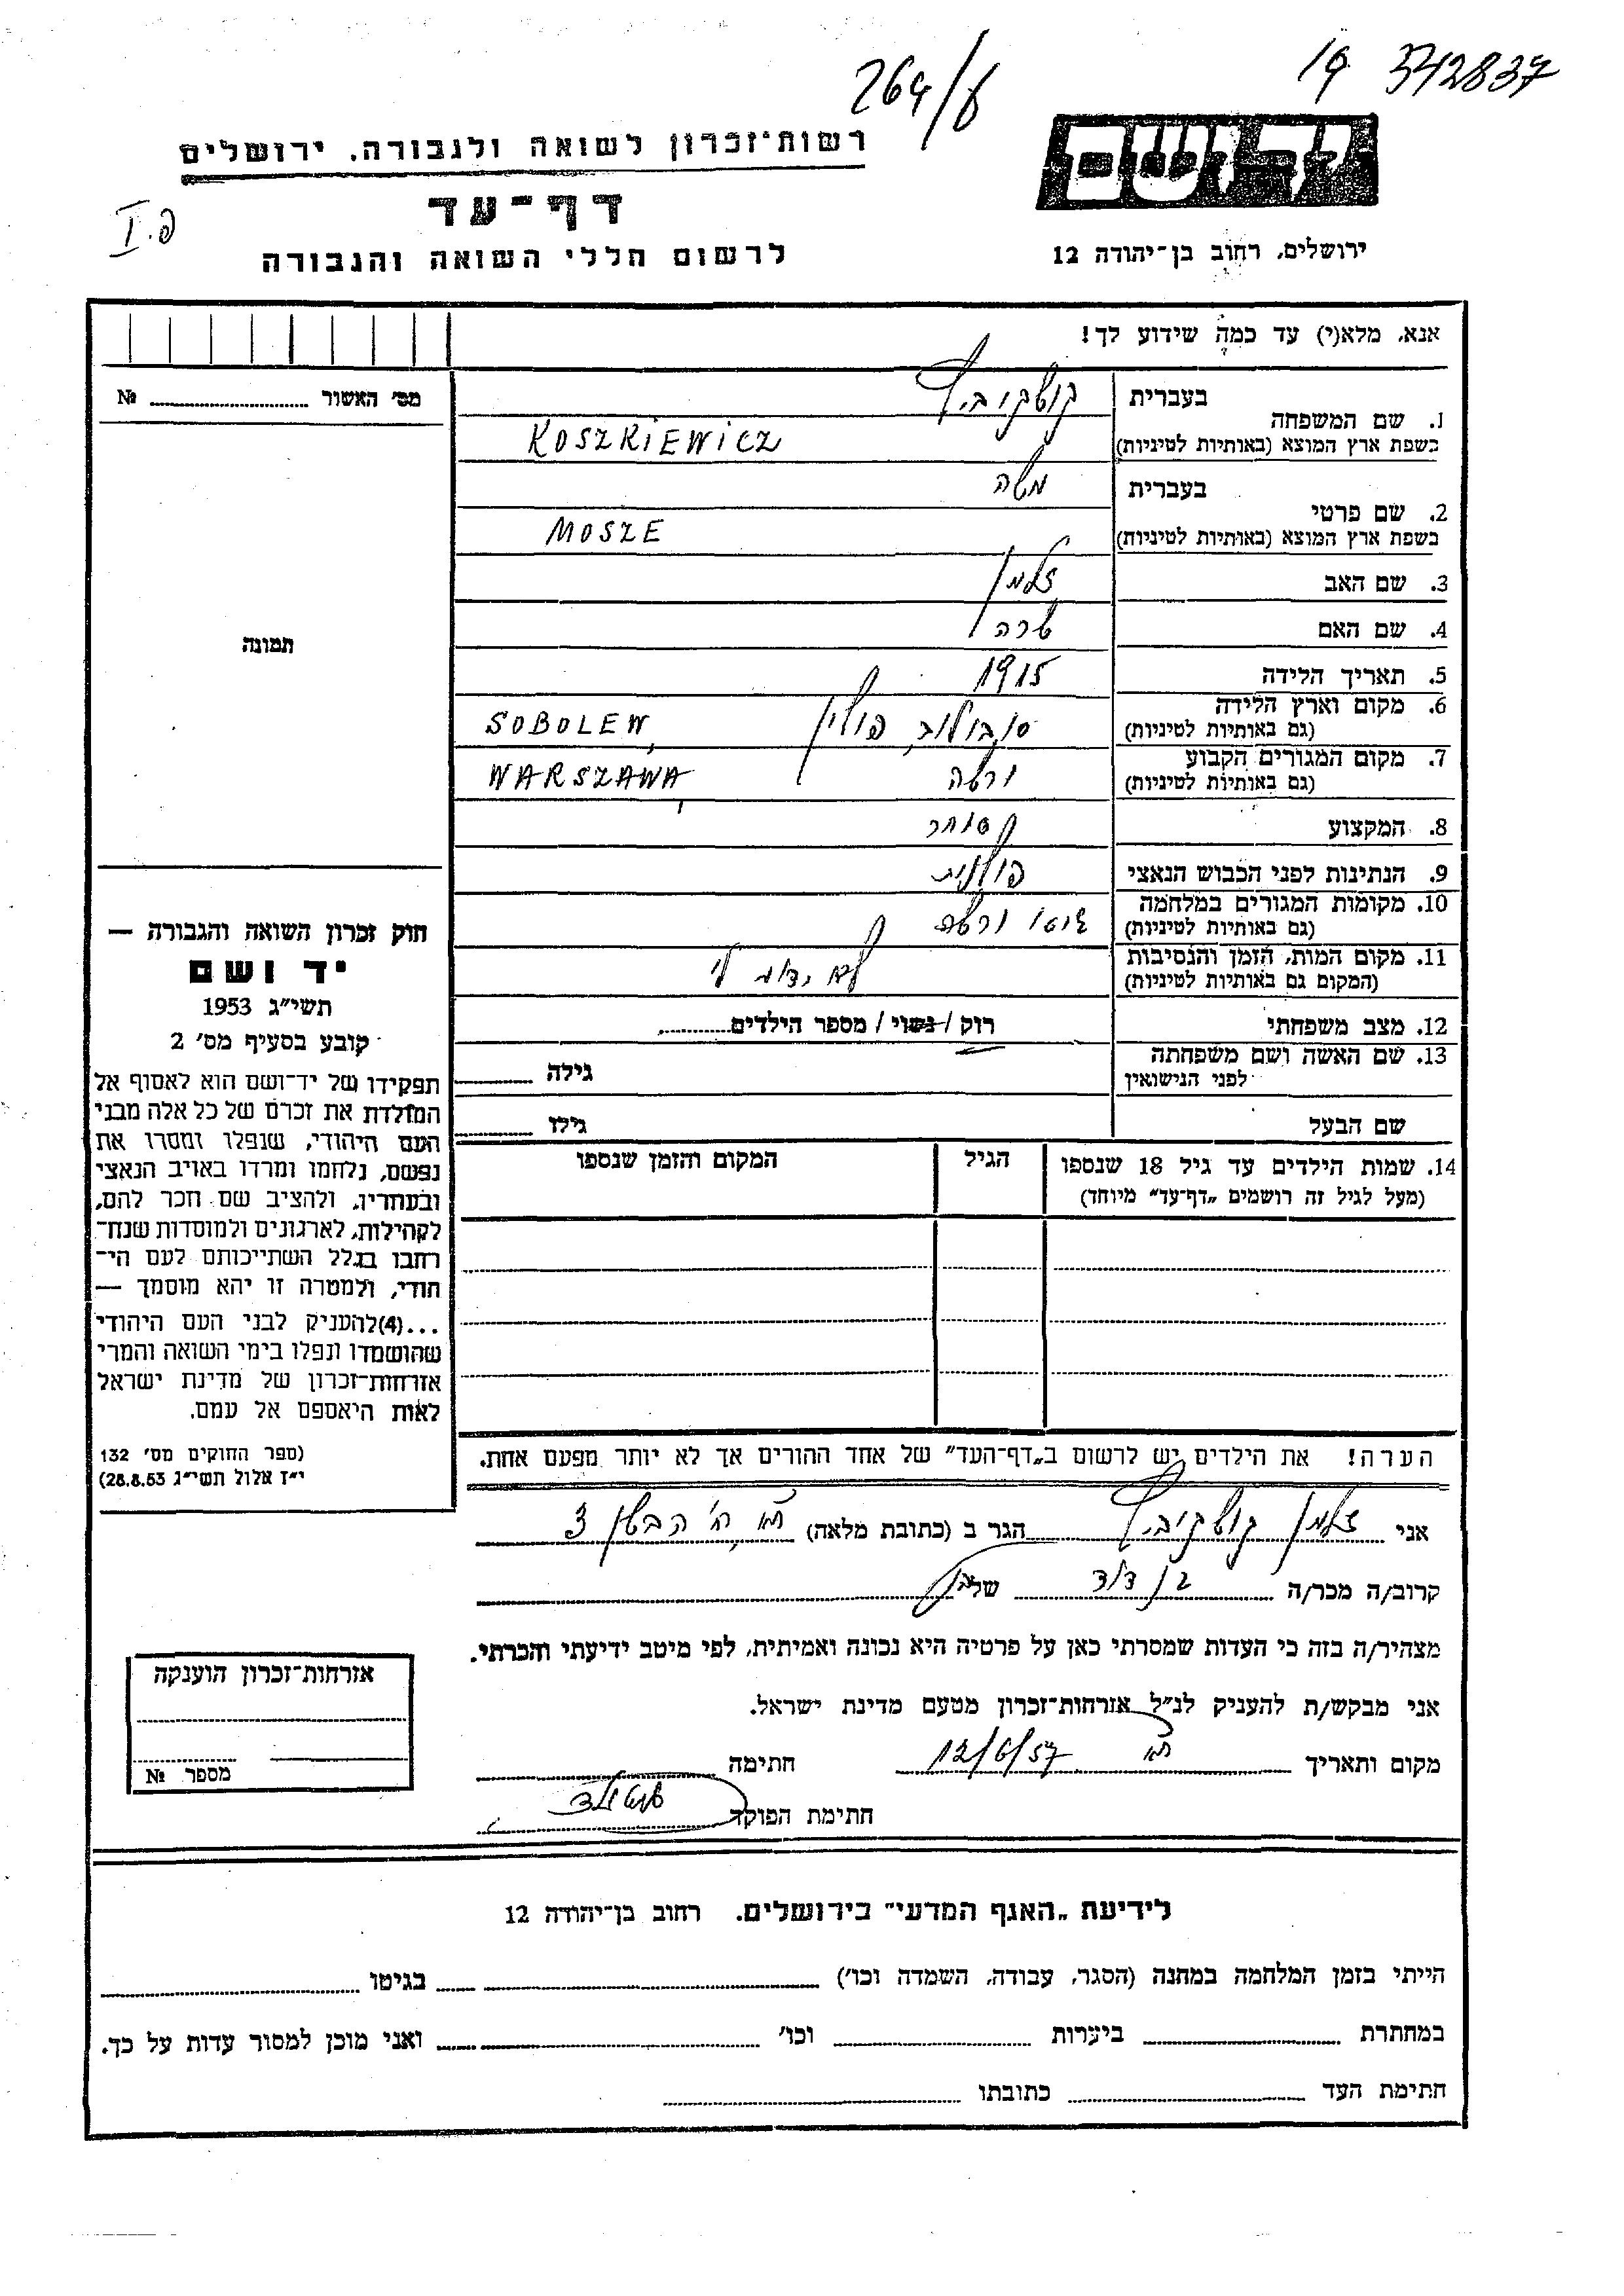 264/ט
19 342837
יד ושם
רשות־זכרון לשואה ולגבורה, ירושלים
דף־עד
לרשום חללי השואה והגבורה
ירושלים, רחוב בן־יהודה 12
פ. I
אנא, מלא(י) עד כמה שידוע לך!
מס׳ האשור № ........
תמונה
1. שם המשפחה בעברית קושקוביץ
בשפת ארץ המוצא (באותיות לטיניות) KOSZKIEWICZ
2. שם פרטי בעברית משה
בשפת ארץ המוצא (באותיות לטיניות) MOSZE
3. שם האב זלמן
4. שם האם שרה
5. תאריך הלידה 1915
6. מקום וארץ הלידה (גם באותיות לטיניות) סובולוב, פולין SOBOLEW,
7. מקום המגורים הקבוע (גם באותיות לטיניות) ורשה WARSZAWA,
8. המקצוע סוחר
9. הנתינות לפני הכבוש הנאצי פולנית
10. מקומות המגורים במלחמה (גם באותיות לטיניות) גיטו ורשה
11. מקום המות, הזמן והנסיבות (המקום גם באותיות לטיניות) לא ידוע לי
12. מצב משפחתי רוק / נשוי / מספר הילדים........
13. שם האשה ושם משפחתה לפני הנישואין גילה ........
שם הבעל גילו ........
14. שמות הילדים עד גיל 18 שנספו (מעל לגיל זה רושמים „דף־עד” מיוחד) הגיל המקום והזמן שנספו
הערה! את הילדים יש לרשום ב„דף־העד” של אחד ההורים אך לא יותר מפעם אחת.
חוק זכרון השואה והגבורה —
יד ושם
תשי״ג 1953
קובע בסעיף מס׳ 2
תפקידו של יד־ושם הוא לאסוף אל
המולדת את זכרם של כל אלה מבני
העם היהודי, שנפלו ומסרו את
נפשם, נלחמו ומרדו באויב הנאצי
ובעוזריו, ולהציב שם וזכר להם,
לקהילות, לארגונים ולמוסדות שנח־
רבו בגלל השתייכותם לעם הי־
הודי, ולמטרה זו יהא מוסמך —
...(4)להעניק לבני העם היהודי
שהושמדו ונפלו בימי השואה והמרי
אזרחות־זכרון של מדינת ישראל
לאות היאספם אל עמם.
(ספר החוקים מס׳ 132
י״ז אלול תשי״ג 28.8.53)
אני זלמן קושקוביץ הגר ב (כתובת מלאה) ת״א, רח׳ 3
קרוב/ה מכר/ה בן דוד של
מצהיר/ה בזה כי העדות שמסרתי כאן על פרטיה היא נכונה ואמיתית, לפי מיטב ידיעתי והכרתי.
אני מבקש/ת להעניק לנ״ל אזרחות־זכרון מטעם מדינת ישראל.
מקום ותאריך ת״א 12/6/57 חתימה
חתימת הפוקד
אזרחות־זכרון הוענקה
מספר №
לידיעת „האגף המדעי” בירושלים. רחוב בן־יהודה 12
הייתי בזמן המלחמה במחנה (הסגר, עבודה, השמדה וכו׳) בגיטו
במחתרת ביערות וכו׳ ואני מוכן למסור עדות על כך.
חתימת העד כתובתו